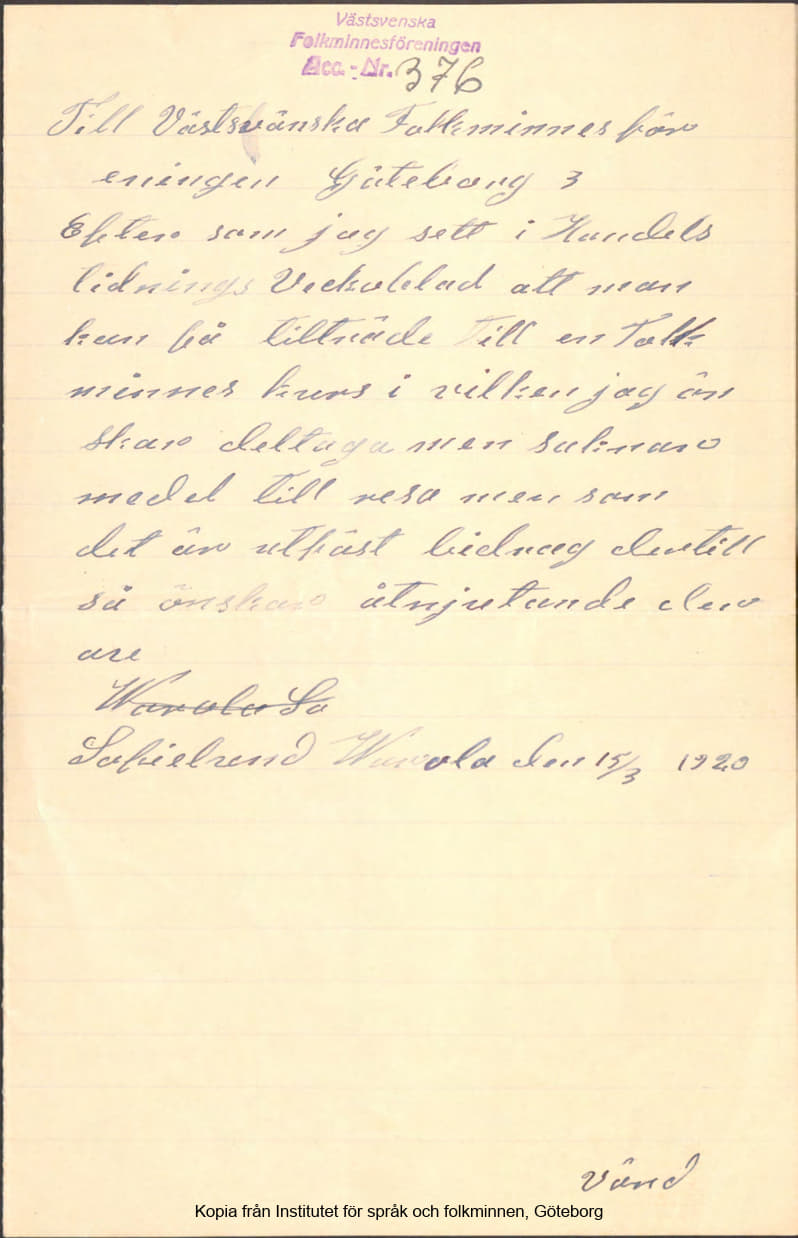 Västsvenska
Folkminnesföreningen
Acc.-Nr. 376
Till Västsvänska Folkminnesför
eningen Göteborg 3
Efter som jag sett i Handels
tidnings Veckoblad att man
kan få tillträde till en Folk
minnes kurs i vilken jag ön
skar deltaga men saknar
medel till resa men som
det är utfäst bidrag dertill
så önskar åtnjutande der
are
Warola So
Sofielund Warola den 15/3 1920
Vänd
Kopia från Institutet för språk och folkminnen, Göteborg